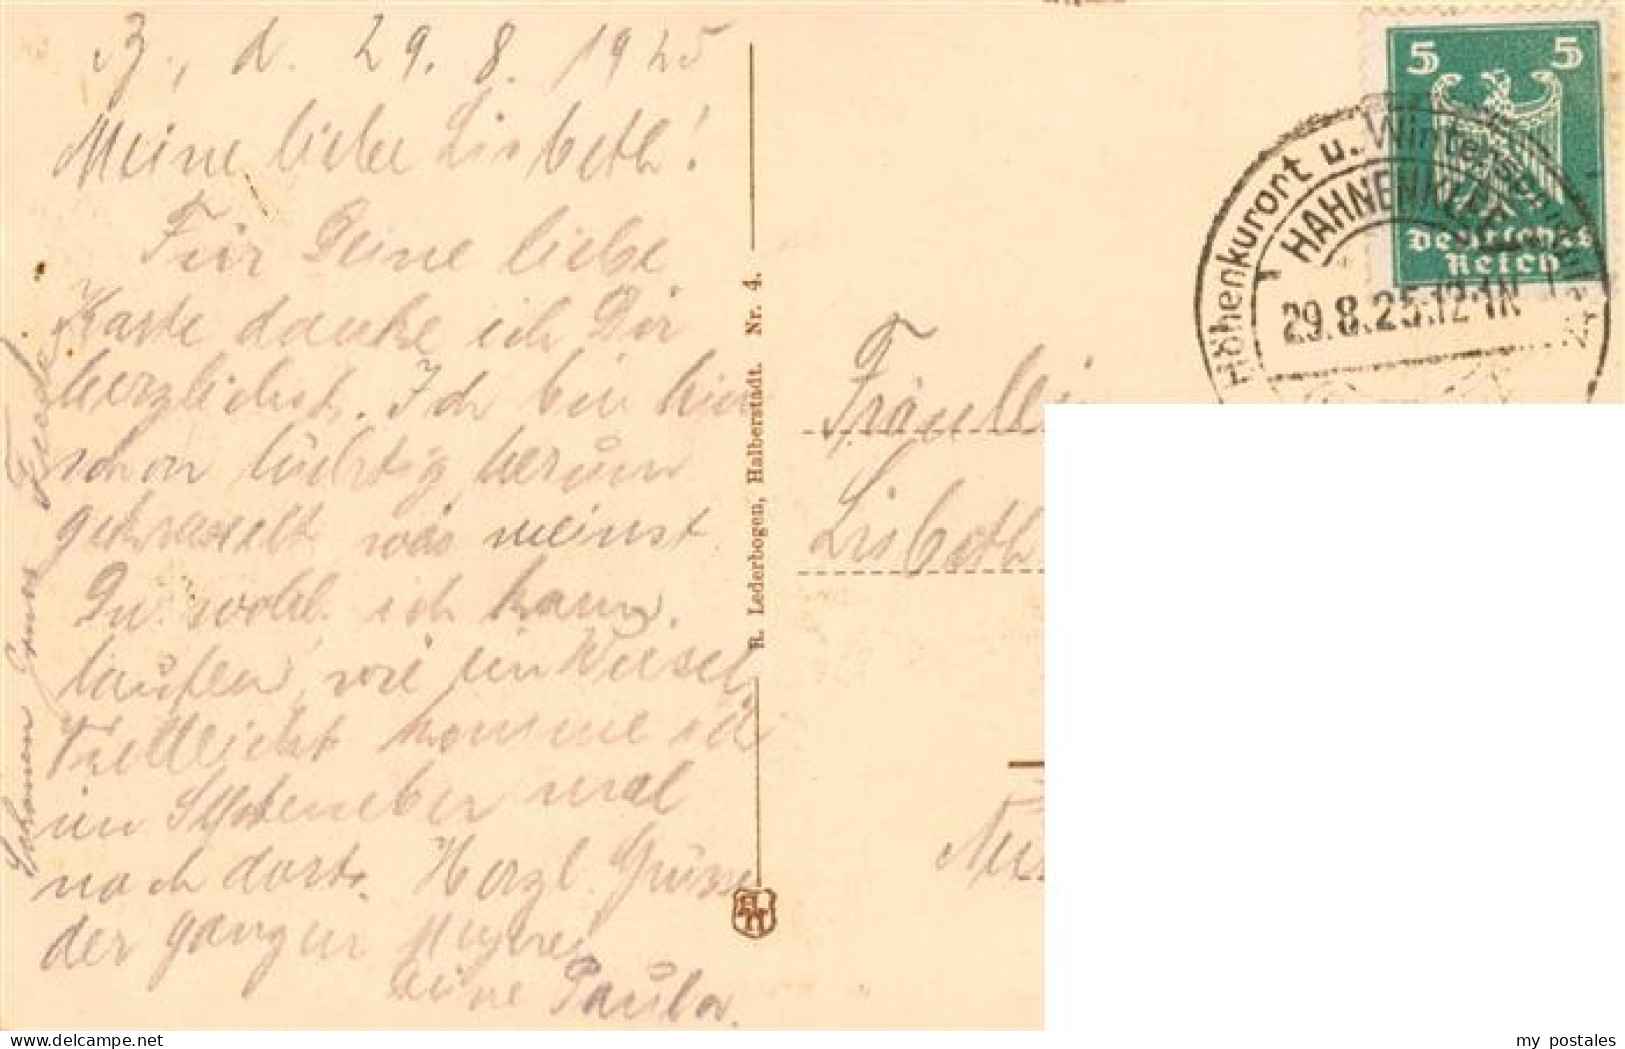 B., d. 29. 8. 1925
Meine liebe Lisbeth!
Für Deine liebe
Karte danke ich Dir
herzlichst. Ich bin hier
schon tüchtig herum
gekraxelt was meinst
Du wohl ich kann
laufen, wie ein Wiesel,
Vielleicht komme ich
im September mal
nach dort. Herzl. Grüsse
der ganzen
Deine Paula.
R. Lederbogen, Halberstadt. Nr. 4.
Höhenkurort u. Wintersport
HAHNENKLEE
29.8.25.12-1N
5 5
Deutsches
Reich
Fräulein
Lisbeth
my postales